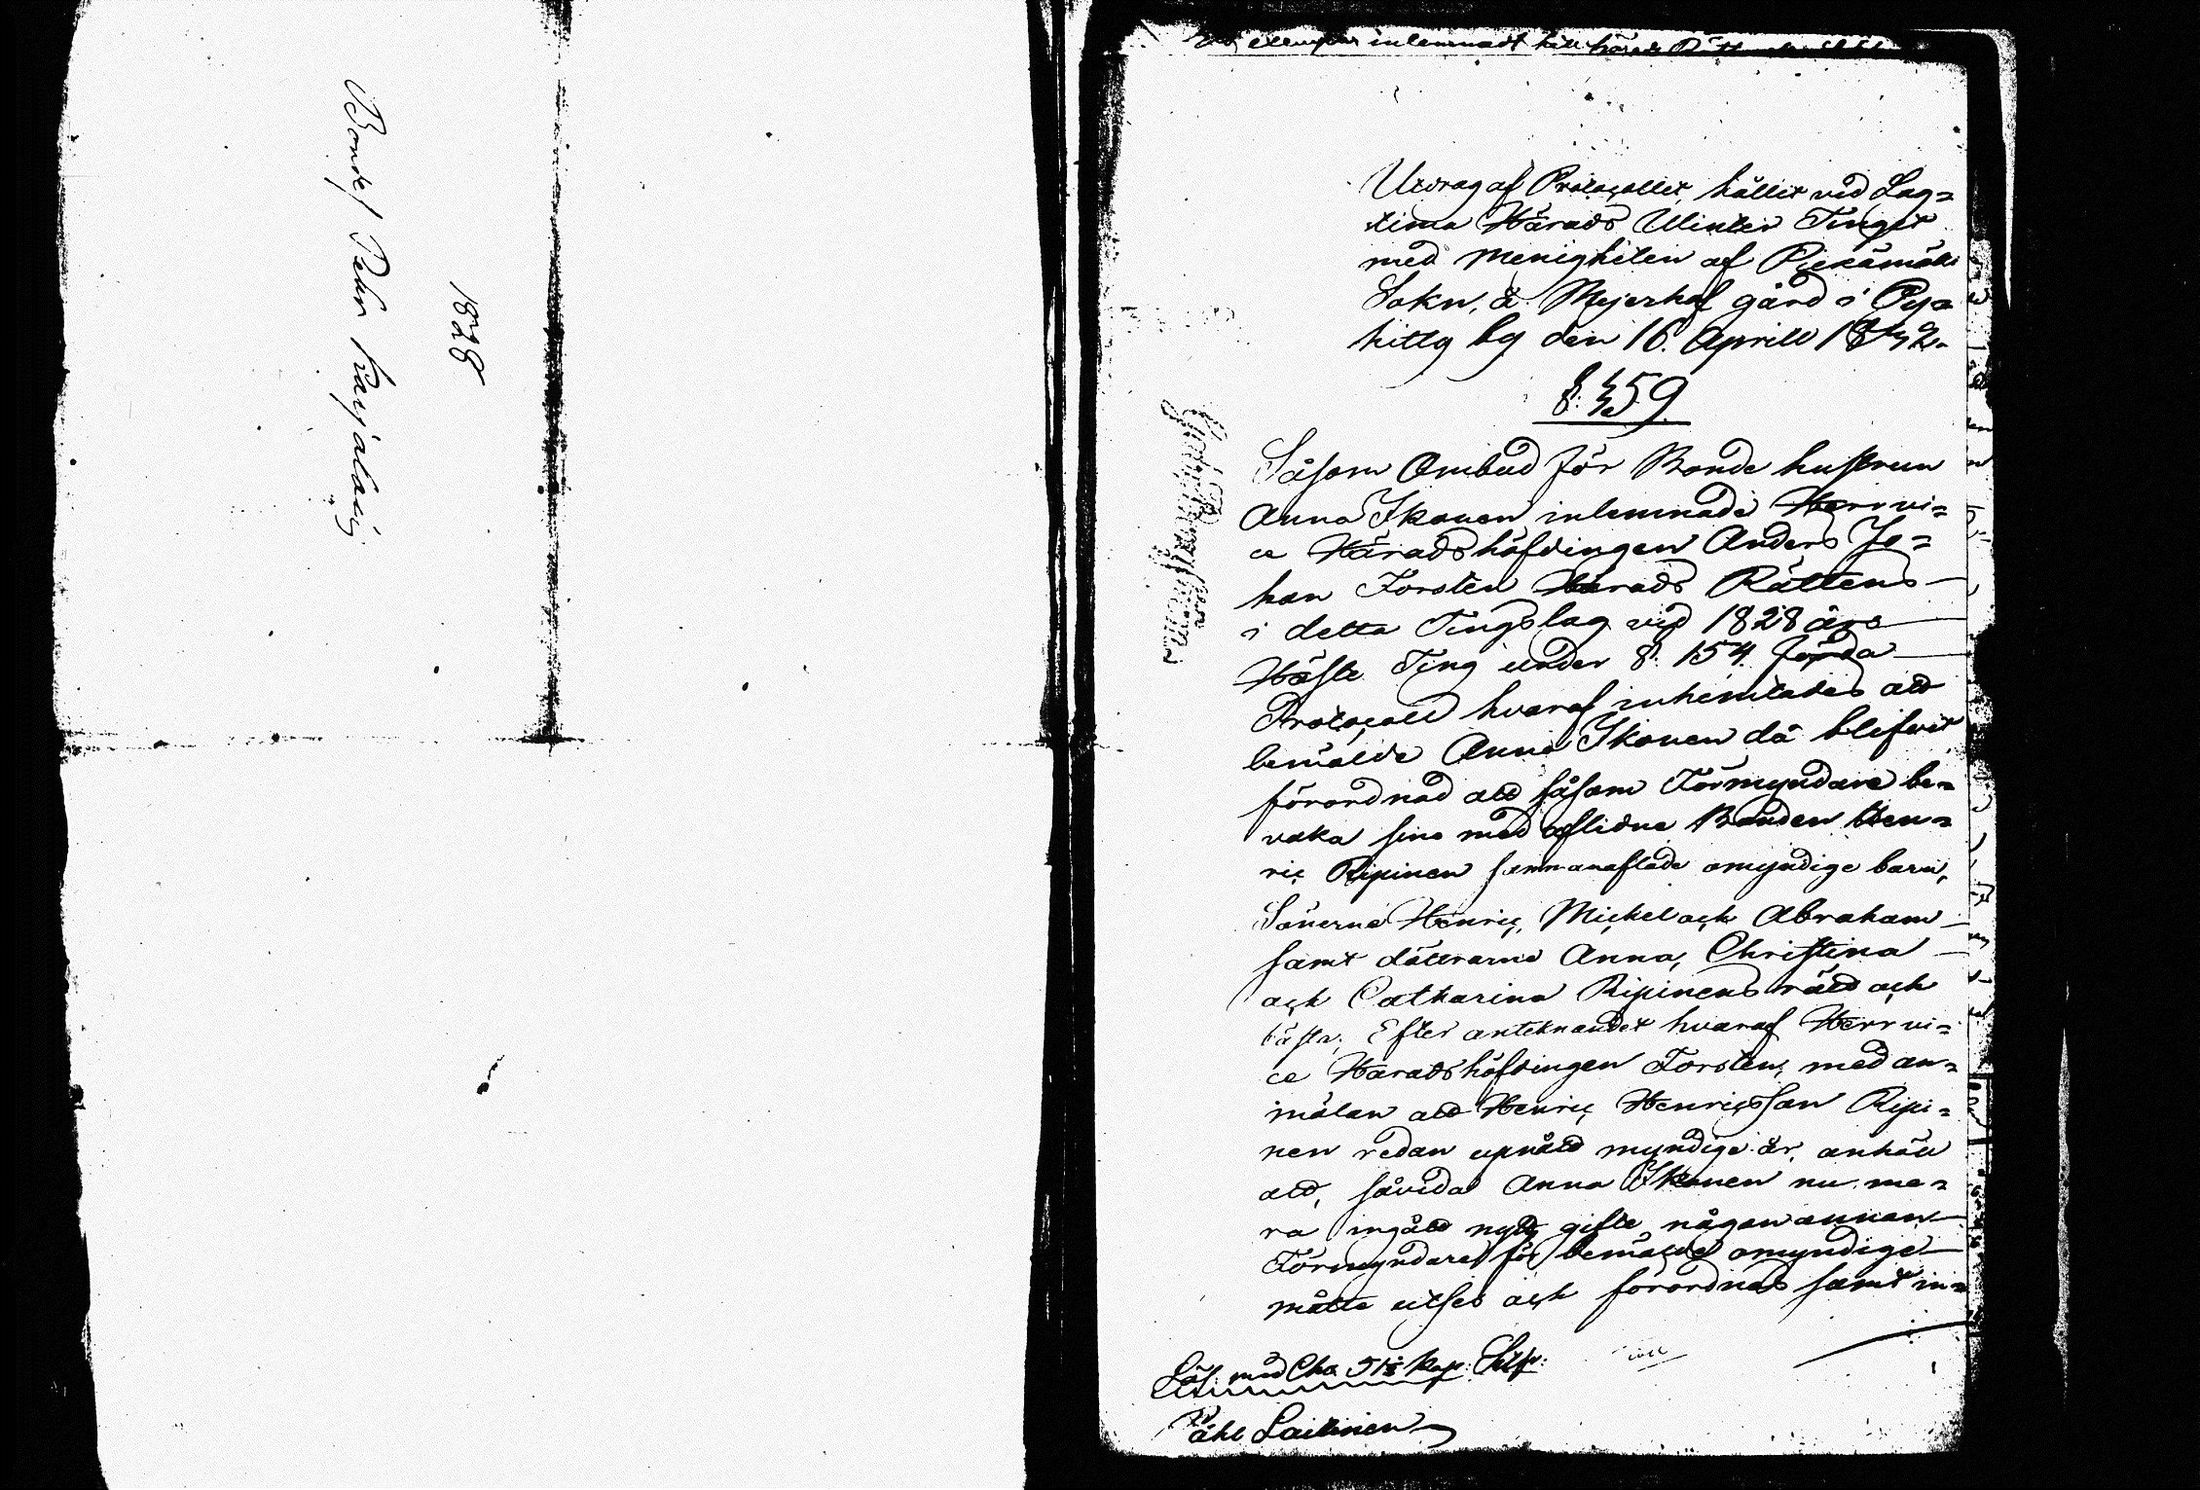 Bonden Petter Karjalain
1828
exemplar inlemnadt till härads
Utdrag af Protocollet, hållit vid Lag=
tima Härads Winter Tinget
med menigheten af Pieksämäki
Sokn, å Meyerhof gård i Pyä
hitty by den 16. Aprill 1842.
§. 159.
Såsom Ombud för Bonde hustrun
Anna Ikonen inlemnade Herr vi=
ce Häradshöfdingen Anders Jo=
han Forsten Härads Rättens
i detta Tingslag vid 1828 års
Höste Ting under §. 154. förda
Protocoll hvaraf inhemtades att
bemälde Anna Ikonen då blifvit
förordnad att såsom Förmyndare be=
vaka sina med aflidne Bonden Hen=
ric Ripinen sammanaflade omyndige barn,
Sönerna Henric, Michel och Abraham
samt döttrarna Anna, Christina
och Catharina Ripinens rätt och
bästa; Efter antecknandet hvaraf Herr vi=
ce Häradshöfdingen Forsten, med an=
mälan att Henric Henricsson Ripi=
nen redan upnått myndige år, anhöll
att, såvida Anna Ikonen nu me=
ra ingått nytt gifte, någon annan
Förmyndare för bemälde omyndige
måtte utses och förordnas samt in=
Lös: med Cha 51 Kop: Silfr:
Påhl Laitinen